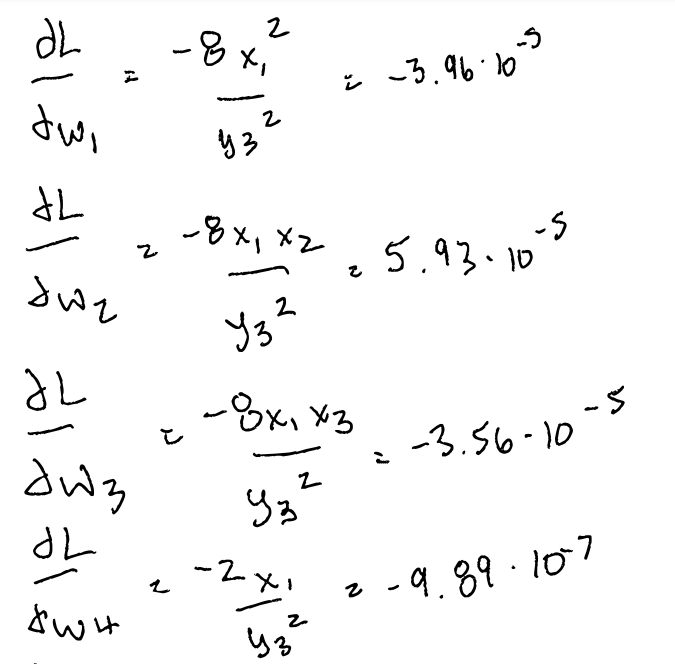 dL/dw₁ = -8x₁²/y₃² = -3.96·10⁻⁵
dL/dw₂ = -8x₁x₂/y₃² = 5.93·10⁻⁵
dL/dw₃ = -8x₁x₃/y₃² = -3.56·10⁻⁵
dL/dw₄ = -2x₁/y₃² = -9.89·10⁻⁷